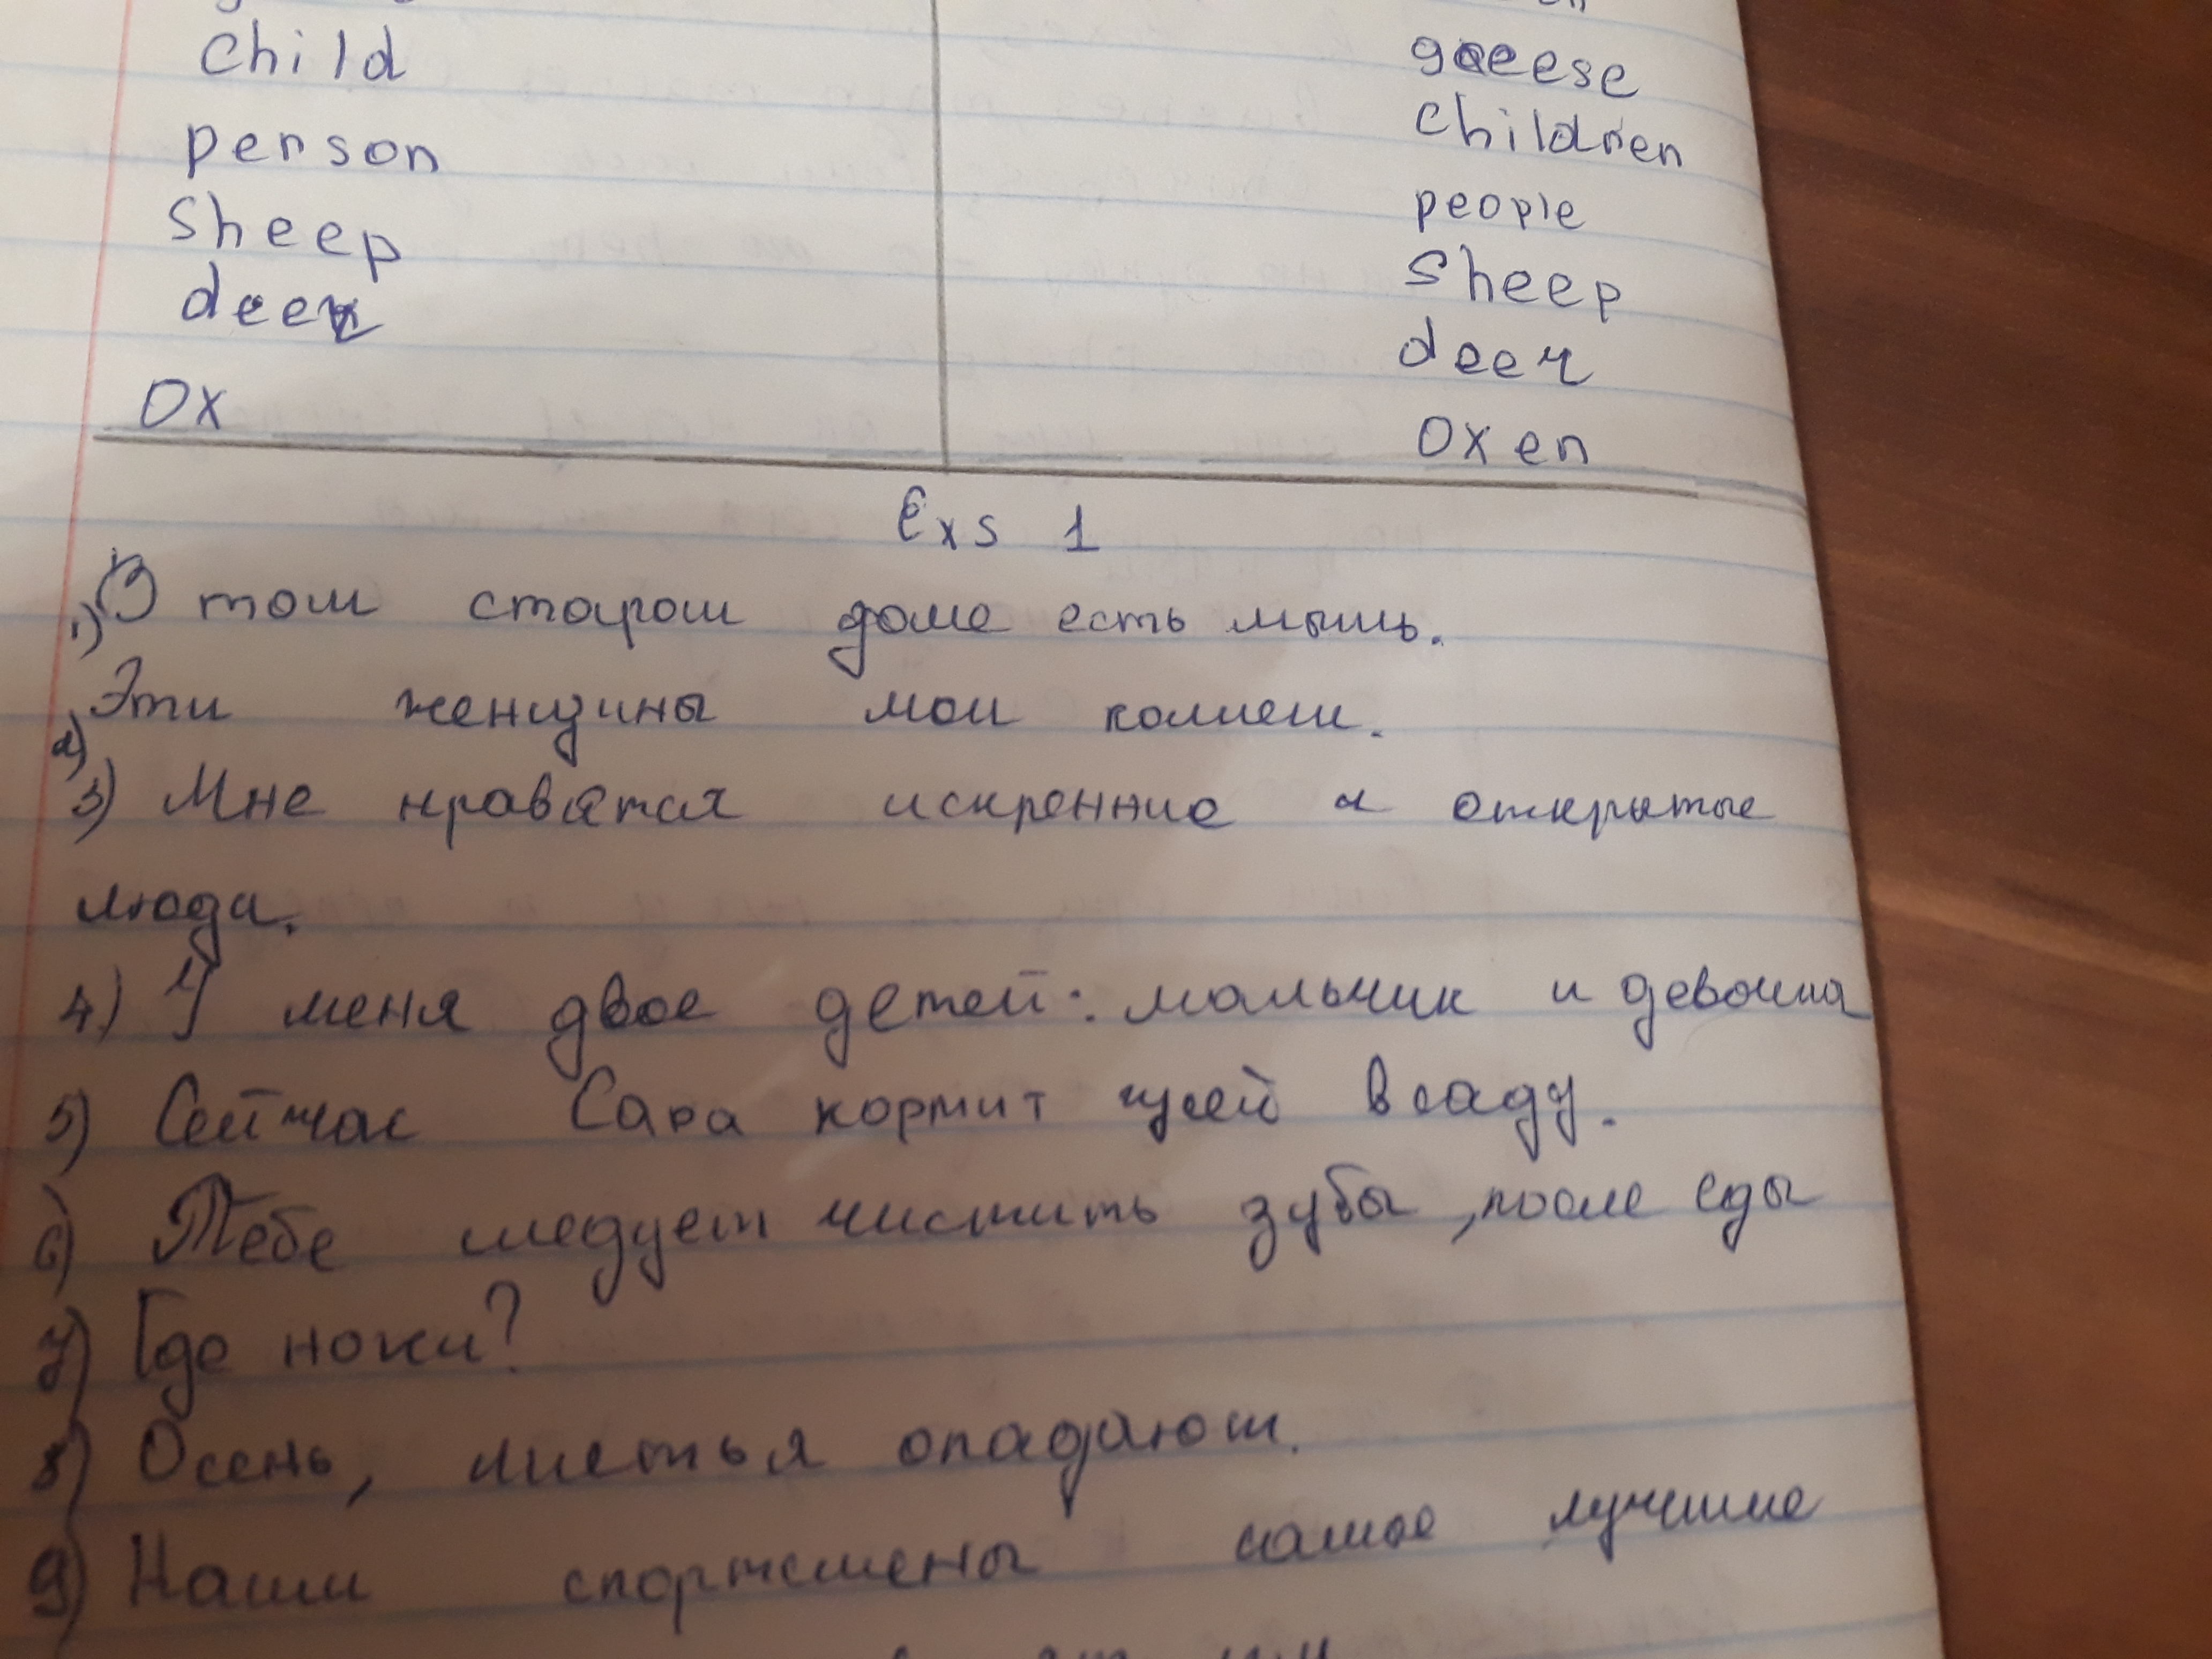 child
geese
children
person
people
sheep
sheep
deer
deer
ox
oxen
Exs 1
1) В том старом доме есть мышь.
2) Эти женщины мои коллеги.
3) Мне нравятся искренние и открытые
люди.
4) У меня двое детей: мальчик и девочка
5) Сейчас Сара кормит гусей в саду.
6) Тебе следует чистить зубы, после еды
7) Где ножи?
8) Осень, листья опадают.
9) Наши спортсмены самые лучшие